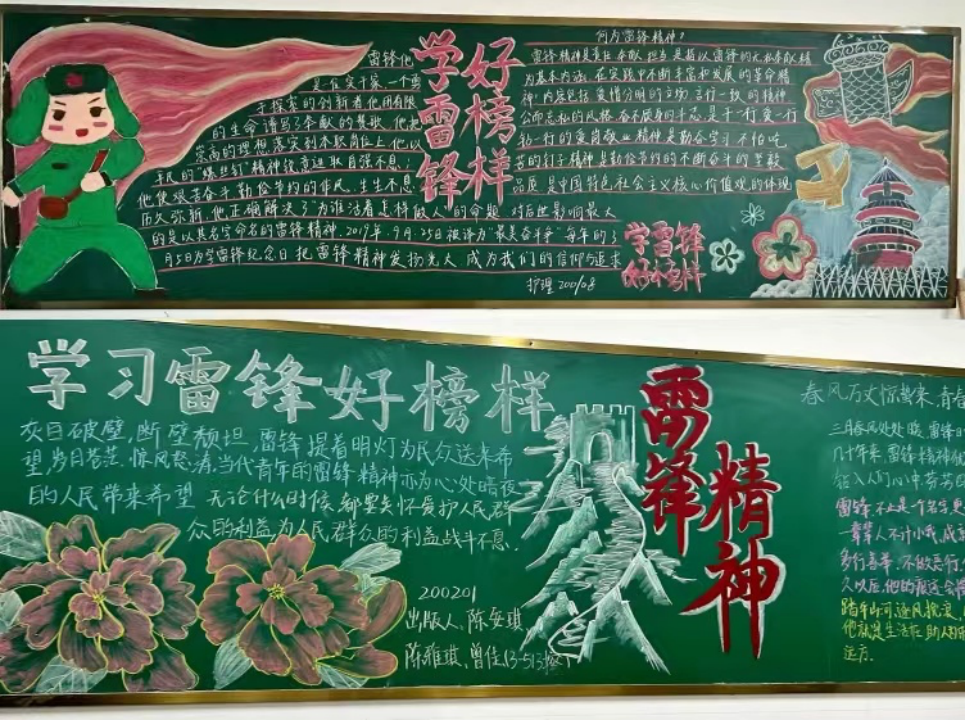 学雷锋
好榜样
雷锋他
是位实干家 一个勇
于探索的创新者 他用有限
的生命 谱写了奉献的赞歌 他把
崇高的理想落实到本职岗位上 他以
平凡的“螺丝钉”精神锐意进取自强不息;
他使艰苦奋斗 勤俭节约的作风 生生不息
历久弥新 他正确解决了“为谁活着怎样做人”的命题 对后世影响最大
的是以其名字命名的雷锋精神 2019年9月25日被评为“最美奋斗” 每年的3
月5日为学雷锋纪念日 把雷锋精神发扬光大 成为我们的信仰与追求
何为雷锋精神?
雷锋精神是责任奉献 担当 是指以雷锋的无私奉献精
为基本内涵 在实践中不断丰富和发展的革命精
神 内容包括 爱憎分明的立场 言行一致的精神
公而忘私的风格 奋不顾身的斗志 是干一行 爱一行
钻一行的爱岗敬业精神 是勤奋学习 不怕吃
苦的钉子精神 是勤俭节约的不断奋斗的
品质 是中国特色社会主义核心价值观的体现
学雷锋
好榜样
护理200108
学习雷锋好榜样
灰日破壁,断壁颓坦,雷锋提着明灯为民众送来希
望,岁月苍茫,惊风怒涛,当代青年的雷锋精神亦为心处暗夜
的人民带来希望
无论什么时候,都要关怀爱护人民群
众的利益,为人民群众的利益战斗不息.
200201
出版人:陈安琪
陈雅琪,曾佳(3-513班)
雷锋
精神
春风万丈惊势来,青春
三月春风处处暖,雷锋
几十年来,雷锋精神
植入人们心中 芳芳
雷锋 不止是一个名字 更
一辈辈人不计小我,成
多行善举,不做恶行,
久以后,他的痕迹会
踏平山河,逐风挽浪,
他就是生活在 助人
远方.